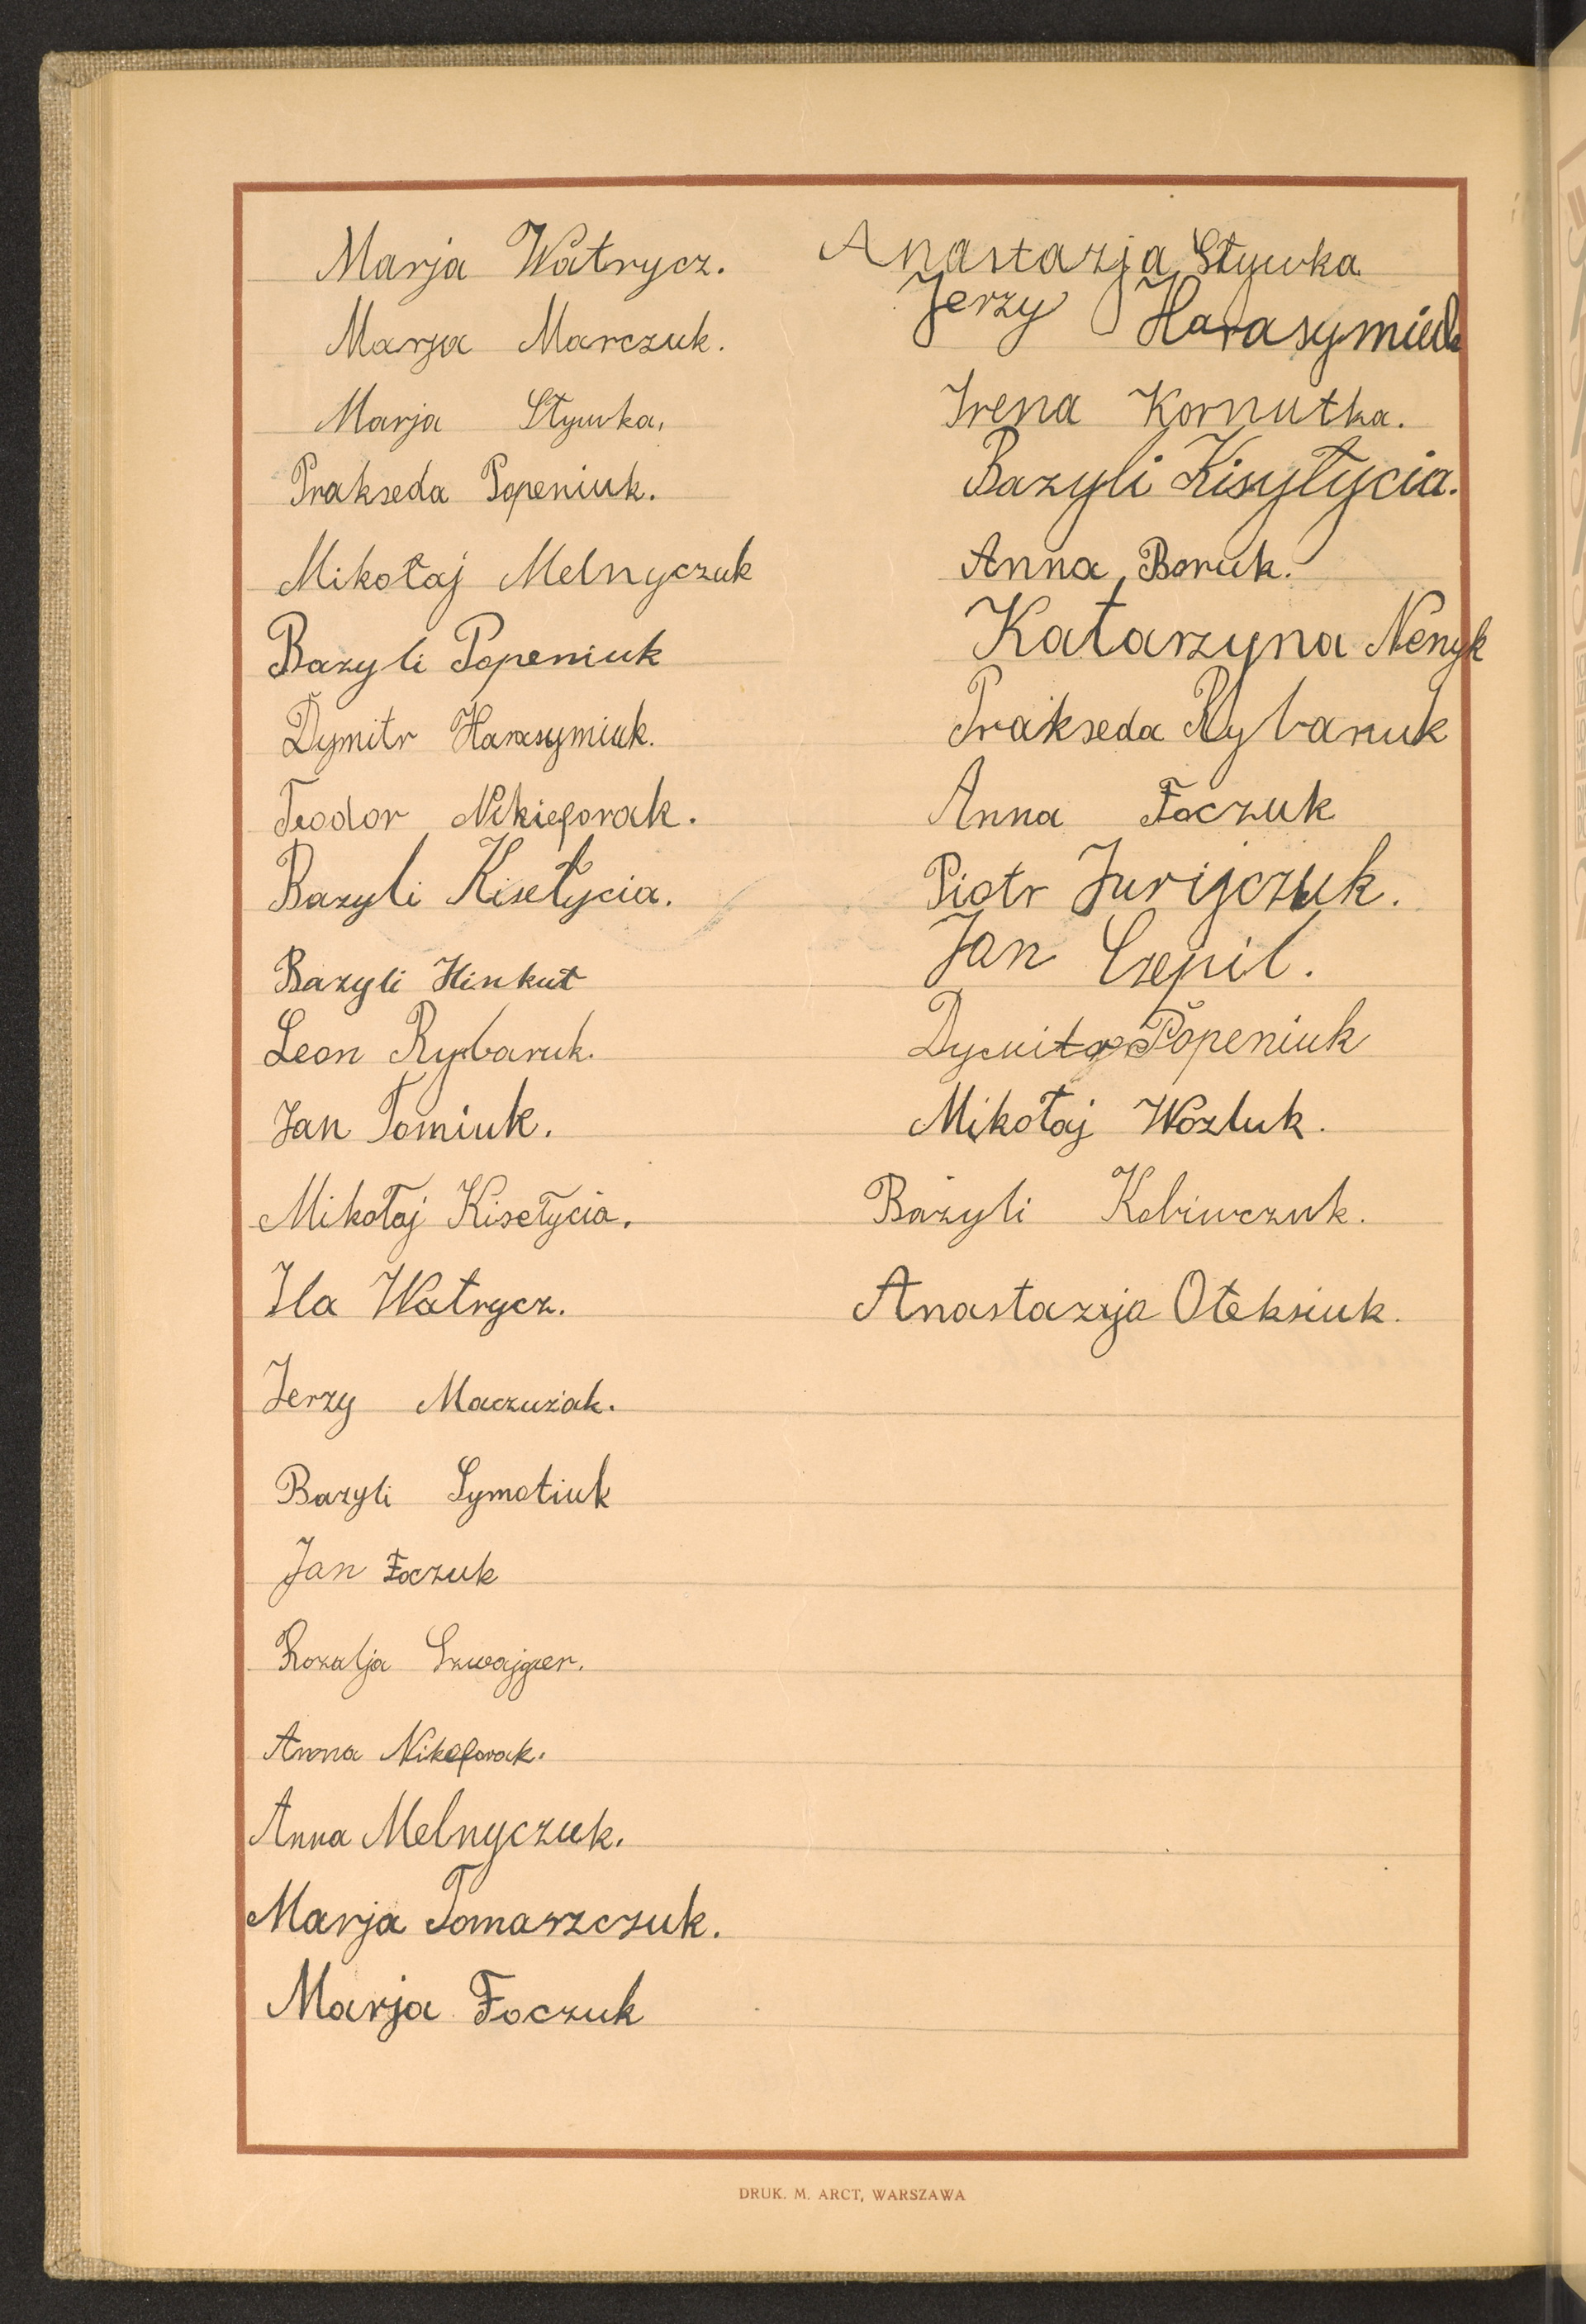 Marja Watrycz.
Marja Marczuk.
Marja Stywka,
Prakseda Popeniuk.
Mikołaj Melnyczuk
Bazyli Popeniuk
Dymitr Harasymiuk.
Teodor Nikieforak.
Bazyli Kisełycia.
Bazyli Hinkut
Leon Rybaruk.
Jan Tomiuk.
Mikołaj Kisełycia.
Ila Watrycz.
Jerzy Maczużak.
Bazyli Symotiuk
Jan Foczuk
Rozalja Szwajger.
Anna Nikeforak.
Anna Melnyczuk.
Marja Tomaszczuk.
Marja Foczuk
Anastazja Stywka
Jerzy Harasymiuk
Irena Kornutka.
Bazyli Kisyłycia.
Anna Boruk.
Katarzyna Nenyk
Prakseda Rybaruk
Anna Foczuk
Piotr Jurijczuk.
Jan Czepil.
Dymitr Popeniuk
Mikołaj Wozluk.
Bazyli Kobiwczuk.
Anastazja Ołeksiuk.
DRUK. M. ARCT, WARSZAWA